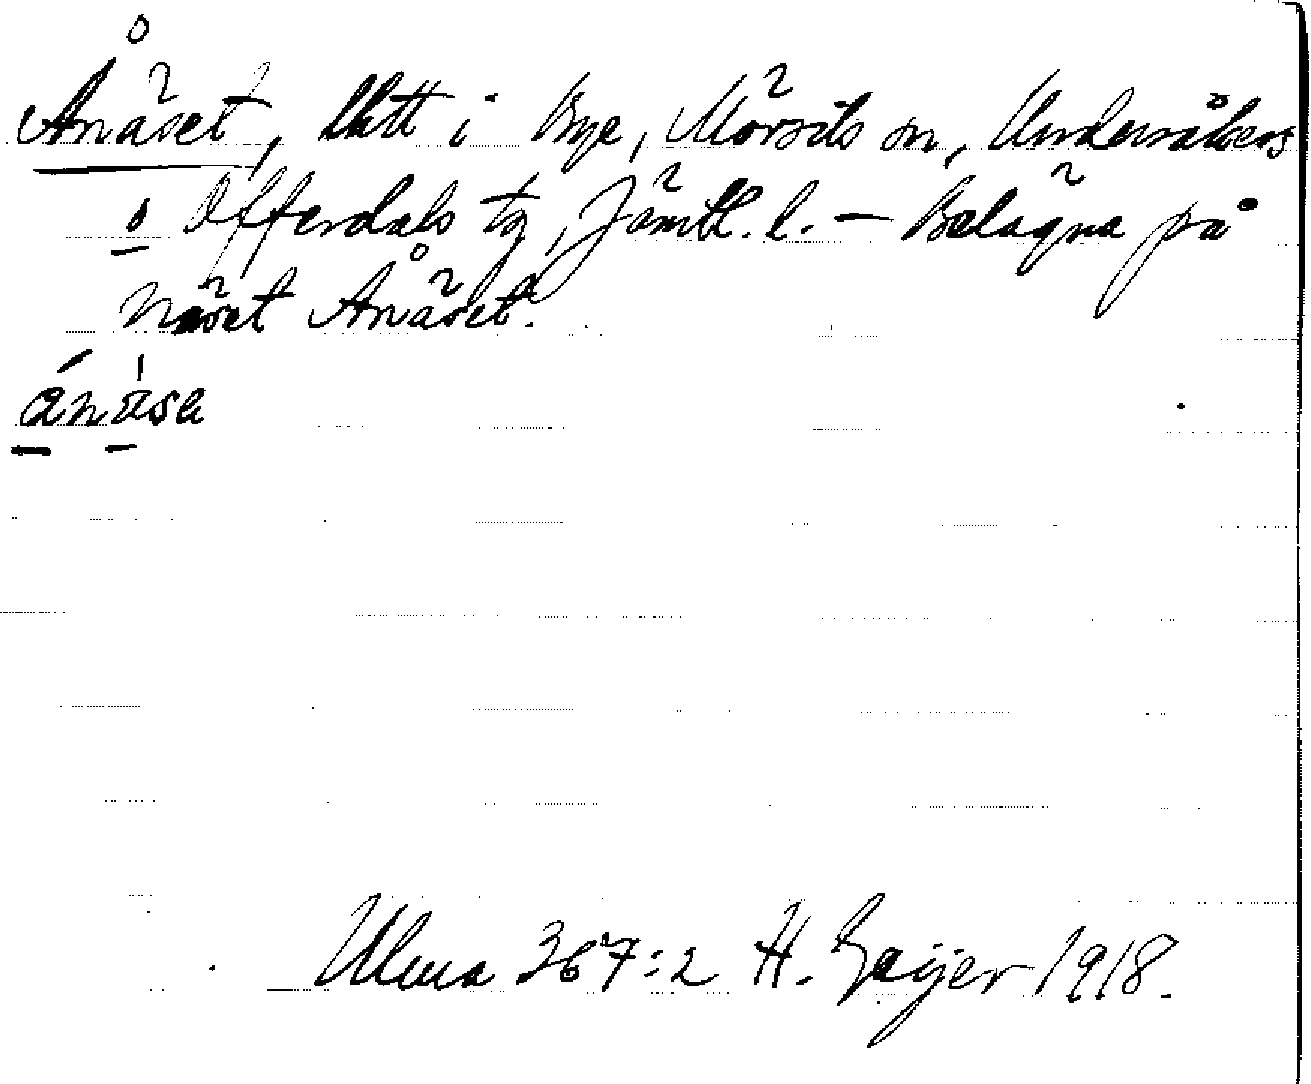 Ånäset, Utt i Bye, Mörsils sn, Undersåkers
o Offerdals tg, Jämtl. l. — Belägna på
näset Ånäset.
ánäsα
Ulma 367:2 H. Geijer 1918.